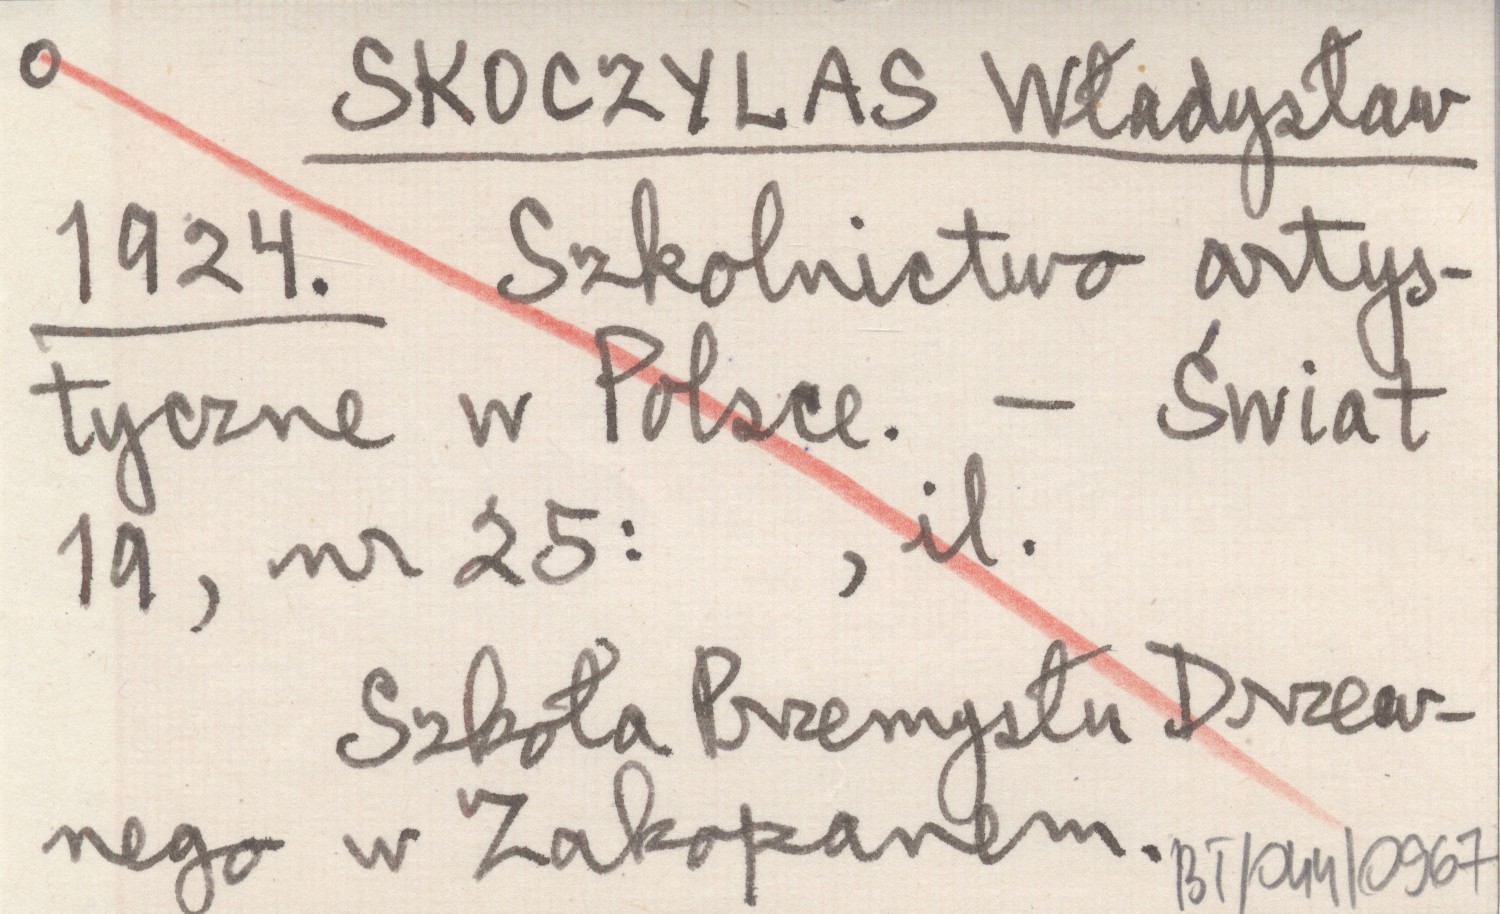 o SKOCZYLAS Władysław
1924. Szkolnictwo artys-
tyczne w Polsce. – Świat
19, nr 25: , il.
Szkoła Przemysłu Drzew-
nego w Zakopanem.
BT/044/0967